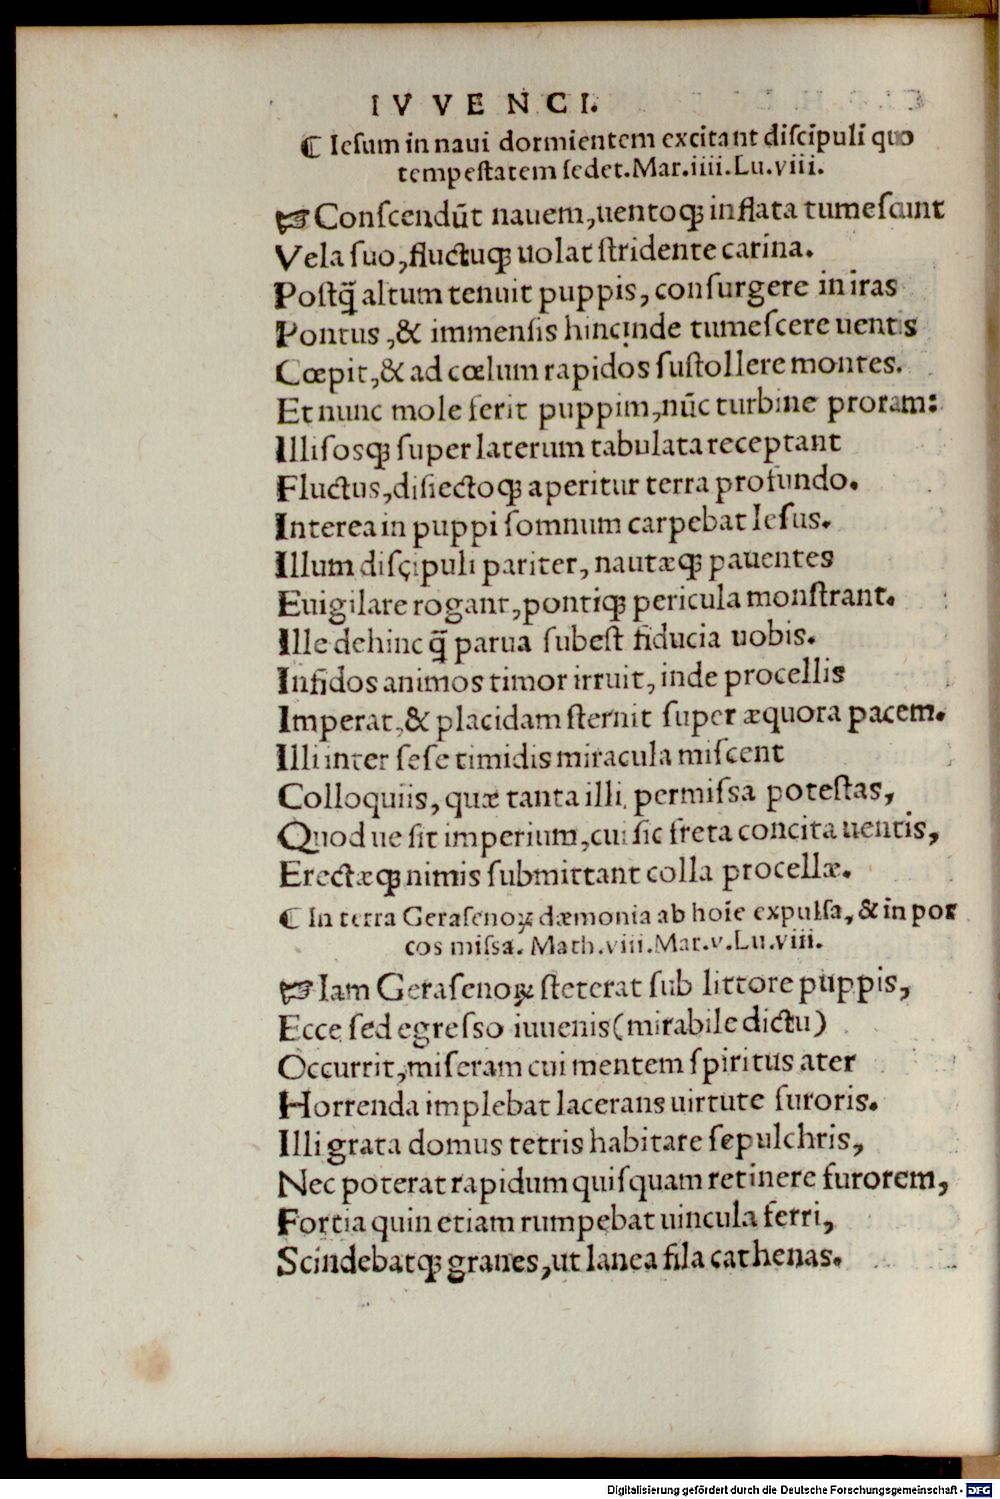 IVVENCI.
⁋ Ieſum in naui dormientem excitant diſcipuli quo
tempeſtatem ſedet. Mar. iiii. Lu. viii.
☞ Conſcendūt nauem, uentoqꝫ inflata tumeſcunt
Vela ſuo, fluctuqꝫ uolat ſtridente carina.
Poſtq̃ altum tenuit puppis, conſurgere in iras
Pontus, & immenſis hincinde tumeſcere uentis
Cœpit, & ad cœlum rapidos ſuſtollere montes.
Et nunc mole ferit puppim, nūc turbine proram:
Illiſosqꝫ ſuper laterum tabulata receptant
Fluctus, diſiectoqꝫ aperitur terra profundo.
Interea in puppi ſomnum carpebat Ieſus.
Illum diſcipuli pariter, nautæqꝫ pauentes
Euigilare rogant, pontiqꝫ pericula monſtrant.
Ille dehinc q̃ parua ſubeſt fiducia uobis.
Infidos animos timor irruit, inde procellis
Imperat, & placidam ſternit ſuper æquora pacem.
Illi inter ſeſe timidis miracula miſcent
Colloquiis, quæ tanta illi permiſſa poteſtas,
Quod ue ſit imperium, cui ſic freta concita uentis,
Erectæqꝫ nimis ſubmittant colla procellæ.
⁋ In terra Geraſenoꝝ dæmonia ab hoīe expulſa, & in por
cos miſſa. Math. viii. Mar. v. Lu. viii.
☞ Iam Geraſenoꝝ ſteterat ſub littore puppis,
Ecce ſed egreſſo iuuenis (mirabile dictu)
Occurrit, miſeram cui mentem ſpiritus ater
Horrenda implebat lacerans uirtute furoris.
Illi grata domus tetris habitare ſepulchris,
Nec poterat rapidum quiſquam retinere furorem,
Fortia quin etiam rumpebat uincula ferri,
Scindebatqꝫ graues, ut lanea fila cathenas.
Digitalisierung gefördert durch die Deutsche Forschungsgemeinschaft - DFG